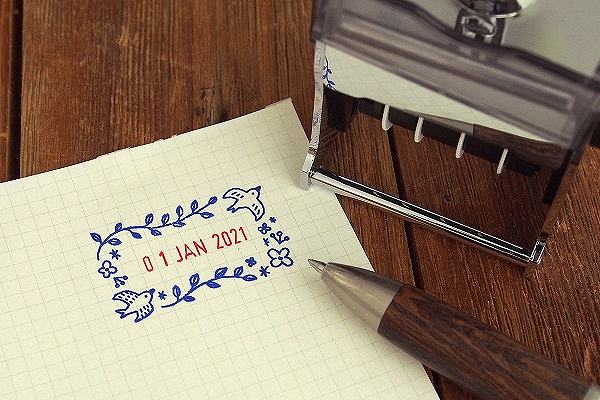 01 JAN 2021